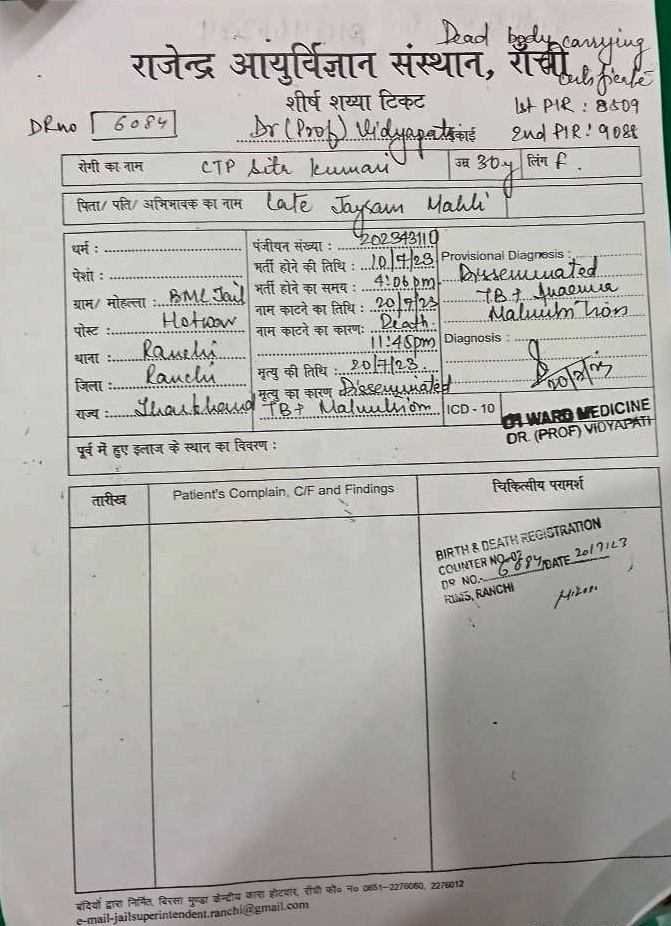 Dead body carrying
certificate
राजेन्द्र आयुर्विज्ञान संस्थान, राँची
शीर्ष शय्या टिकट
1st PIR : 8509
DR no 6084
Dr (Prof) Vidyapati इकाई
2nd PIR : 9088
रोगी का नाम CTP Sita Kumari उम्र 30y लिंग F.
पिता/ पति/ अभिभावक का नाम Late Jaysam Mahli
धर्म :
पंजीयन संख्या :
पेशा :
भर्ती होने की तिथि : 10/7/23
Provisional Diagnosis :
ग्राम/ मोहल्ला : BMC Jail
भर्ती होने का समय : 4:06 pm
Disseminated
पोस्ट Hotwar
नाम काटने का तिथि : 20/7/23
TB + Anaemia
थाना : Ranchi
नाम काटने का कारण: Death.
Malnutrition
11:45pm
Diagnosis :
जिला : Ranchi
मृत्यु की तिथि : 20/7/23.
राज्य : Jharkhand
मृत्यु का कारण Disseminated
TB + Malnutrition
ICD - 10
D1 WARD MEDICINE
DR. (PROF) VIDYAPATI
पूर्व में हुए इलाज के स्थान का विवरण :
तारीख
Patient's Complain, C/F and Findings
चिकित्सीय परामर्श
BIRTH & DEATH REGISTRATION
COUNTER NO-02
DR NO.- 6084 DATE 20/7/23
RIMS, RANCHI
बंदियों द्वारा निर्मित, बिरसा मुण्डा केन्द्रीय कारा होटवार, राँची फो० न० 0651-2276060, 2276012
e-mail-jailsuperintendent.ranchi@gmail.com